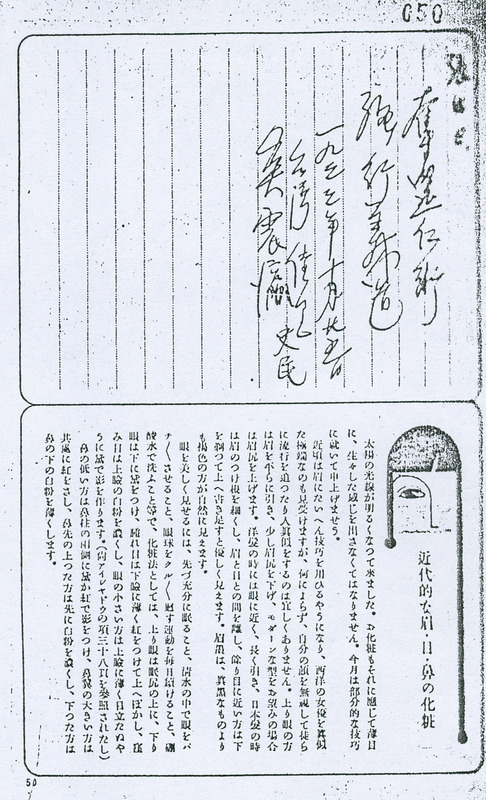 050
仁術
台湾
吳震瀛
近代的な眉・目・鼻の化粧
太陽の光線が明るくなつて來ました。お化粧もそれに應じて薄目
に、生々した感じを出さなくてはなりません。今月は部分的な技巧
に就いて申上げませう。
近頃は眉にたいへん技巧を用ひるやうになり、西洋の女優を眞似
た極端なのも見受けますが、何によらず、自分の顏を無視して徒ら
に流行を追つたり人眞似をするのは宜しくありません。上り眼の方
は眉を平らに引き、少し眉尻を下げ、モダーンな型をお望みの場合
は眉尻を上げます。洋髮の時には眼に近く、長く引き、日本髮の時
は眉のつけ根を細くし、眉と目との間を離し、餘り目に近い方は下
を剃つて上へ書き足すと優しく見えます。眉墨は、眞黑なものより
も褐色の方が自然に見えます。
眼を美しく見せるには、先づ充分に眠ること、清水の中で眼をパ
チ〳〵させること、眼球をクル〳〵廻す運動を毎日續けること、硼
酸水で洗ふこと等で、化粧法としては、上り眼は眼尻の上に、下り
眼は下に黛をつけ、腫れ目は下瞼に薄く紅をつけて上へぼかし、窪
み目は上瞼の白粉を濃くし、眼の小さい方は上瞼に薄く目立たぬや
うに黛で影を作ります。(尚アイシヤドウの項三十八頁を參照されたし)
鼻の低い方は鼻柱の兩側に黛か紅で影をつけ、鼻翼の大きい方は
共處に紅をさし、鼻先の上つた方は先に白粉を濃くし、下つた方は
鼻の下の白粉を薄くします。
50